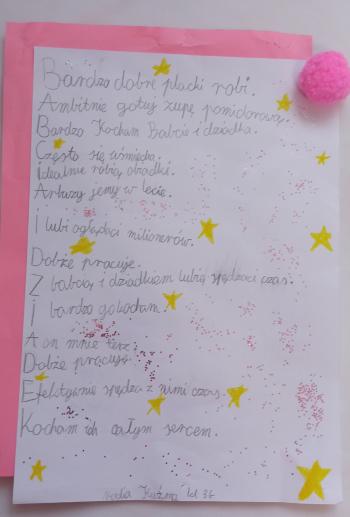 Bardzo dobre placki robi.
Ambitnie gotuj zupę pomidorową.
Bardzo Kocham Babcie i dziadka.
Często się uśmiecha.
Idealnie robią obiadki.
Arbuzy jemy w lecie.
i lubi oglądać milionerów.
Dobże pracuje.
Z babcią i dziadkiem lubię spędzać czas.
i bardzo go kocham.
A on mnie też.
Dobże pracuje.
Efektywnie spędza z nimi czas.
Kocham ich całym sercem.
kl 3